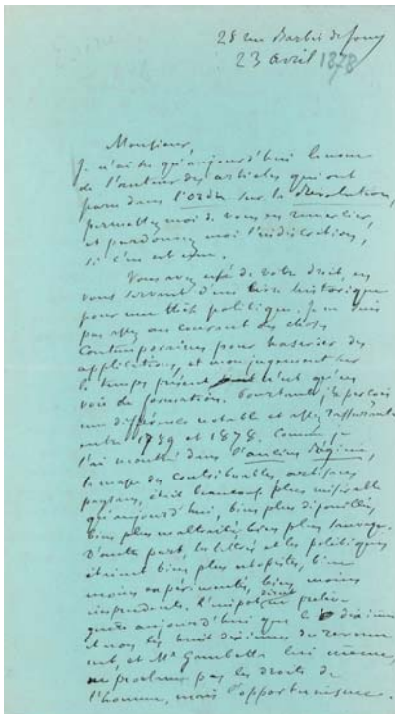 28 rue Barbet de Jouy
23 avril 1878
Monsieur,
Je n'ai su qu'aujourd'hui le nom
de l'auteur des articles qui ont
paru dans l'Ordre sur la Révolution,
permettez moi de vous en remercier,
et pardonnez moi l'indiscrétion,
si c'en est une.
Vous avez usé de votre droit, en
vous servant d'un livre historique
pour une thèse politique. Je ne suis
pas assez au courant des choses
contemporaines pour hasarder des
applications, et mon jugement sur
le temps présent n'est qu'en
voie de formation. Pourtant, je perçois
une différence notable et assez rassurante
entre 1789 et 1878. Comme je
l'ai montré dans l'ancien Régime,
la masse des contribuables, artisans
paysans, était beaucoup plus misérable
qu'aujourd'hui, bien plus dépouillée,
bien plus maltraitée, bien plus sauvage.
D'autre part, les lettrés et les politiques
étaient bien plus utopistes, bien
moins expérimentés, bien moins
imprudents. L'impôt direct ne prélève
guère aujourd'hui que le dixième
et non les huit dixièmes du revenu
net, et Mr Gambetta lui même,
ne proclame pas les droits de
l'homme, mais l'opportunisme.